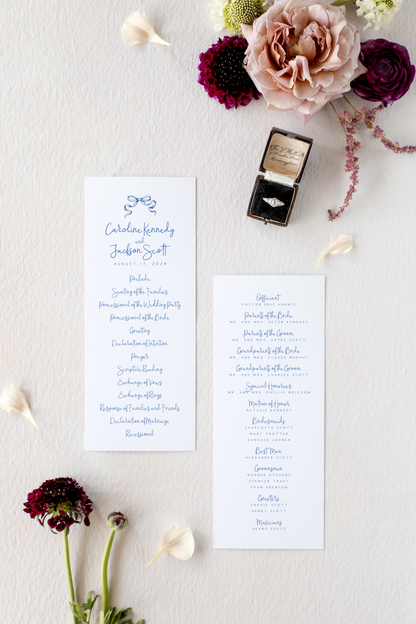 Caroline Kennedy
and
Jackson Scott
AUGUST 17, 2024
Prelude
Seating of the Families
Processional of the Wedding Party
Processional of the Bride
Greeting
Declaration of Intention
Prayer
Scripture Reading
Exchange of Vows
Exchange of Rings
Response of Families and Friends
Declaration of Marriage
Recessional
Officiant
PASTOR ERIC HARRIS
Parents of the Bride
MR. AND MRS. PETER KENNEDY
Parents of the Groom
MR. AND MRS. HAYES SCOTT
Grandparents of the Bride
MR. AND MRS. CLAUDE MURPHY
Grandparents of the Groom
MR. AND MRS. CHARLES SCOTT
Special Honorees
MR. AND MRS. PHILLIP
Matron of Honor
NATALIE KENNEDY
Bridesmaids
CHARLOTTE SCOTT
MARY TROTTER
CANDACE JOINER
Best Man
ALEXANDER SCOTT
Groomsmen
WARNER STEVENS
SPENCER TRUAT
EVAN
Greeters
SOPHIE SCOTT
HENRY SCOTT
Musicians